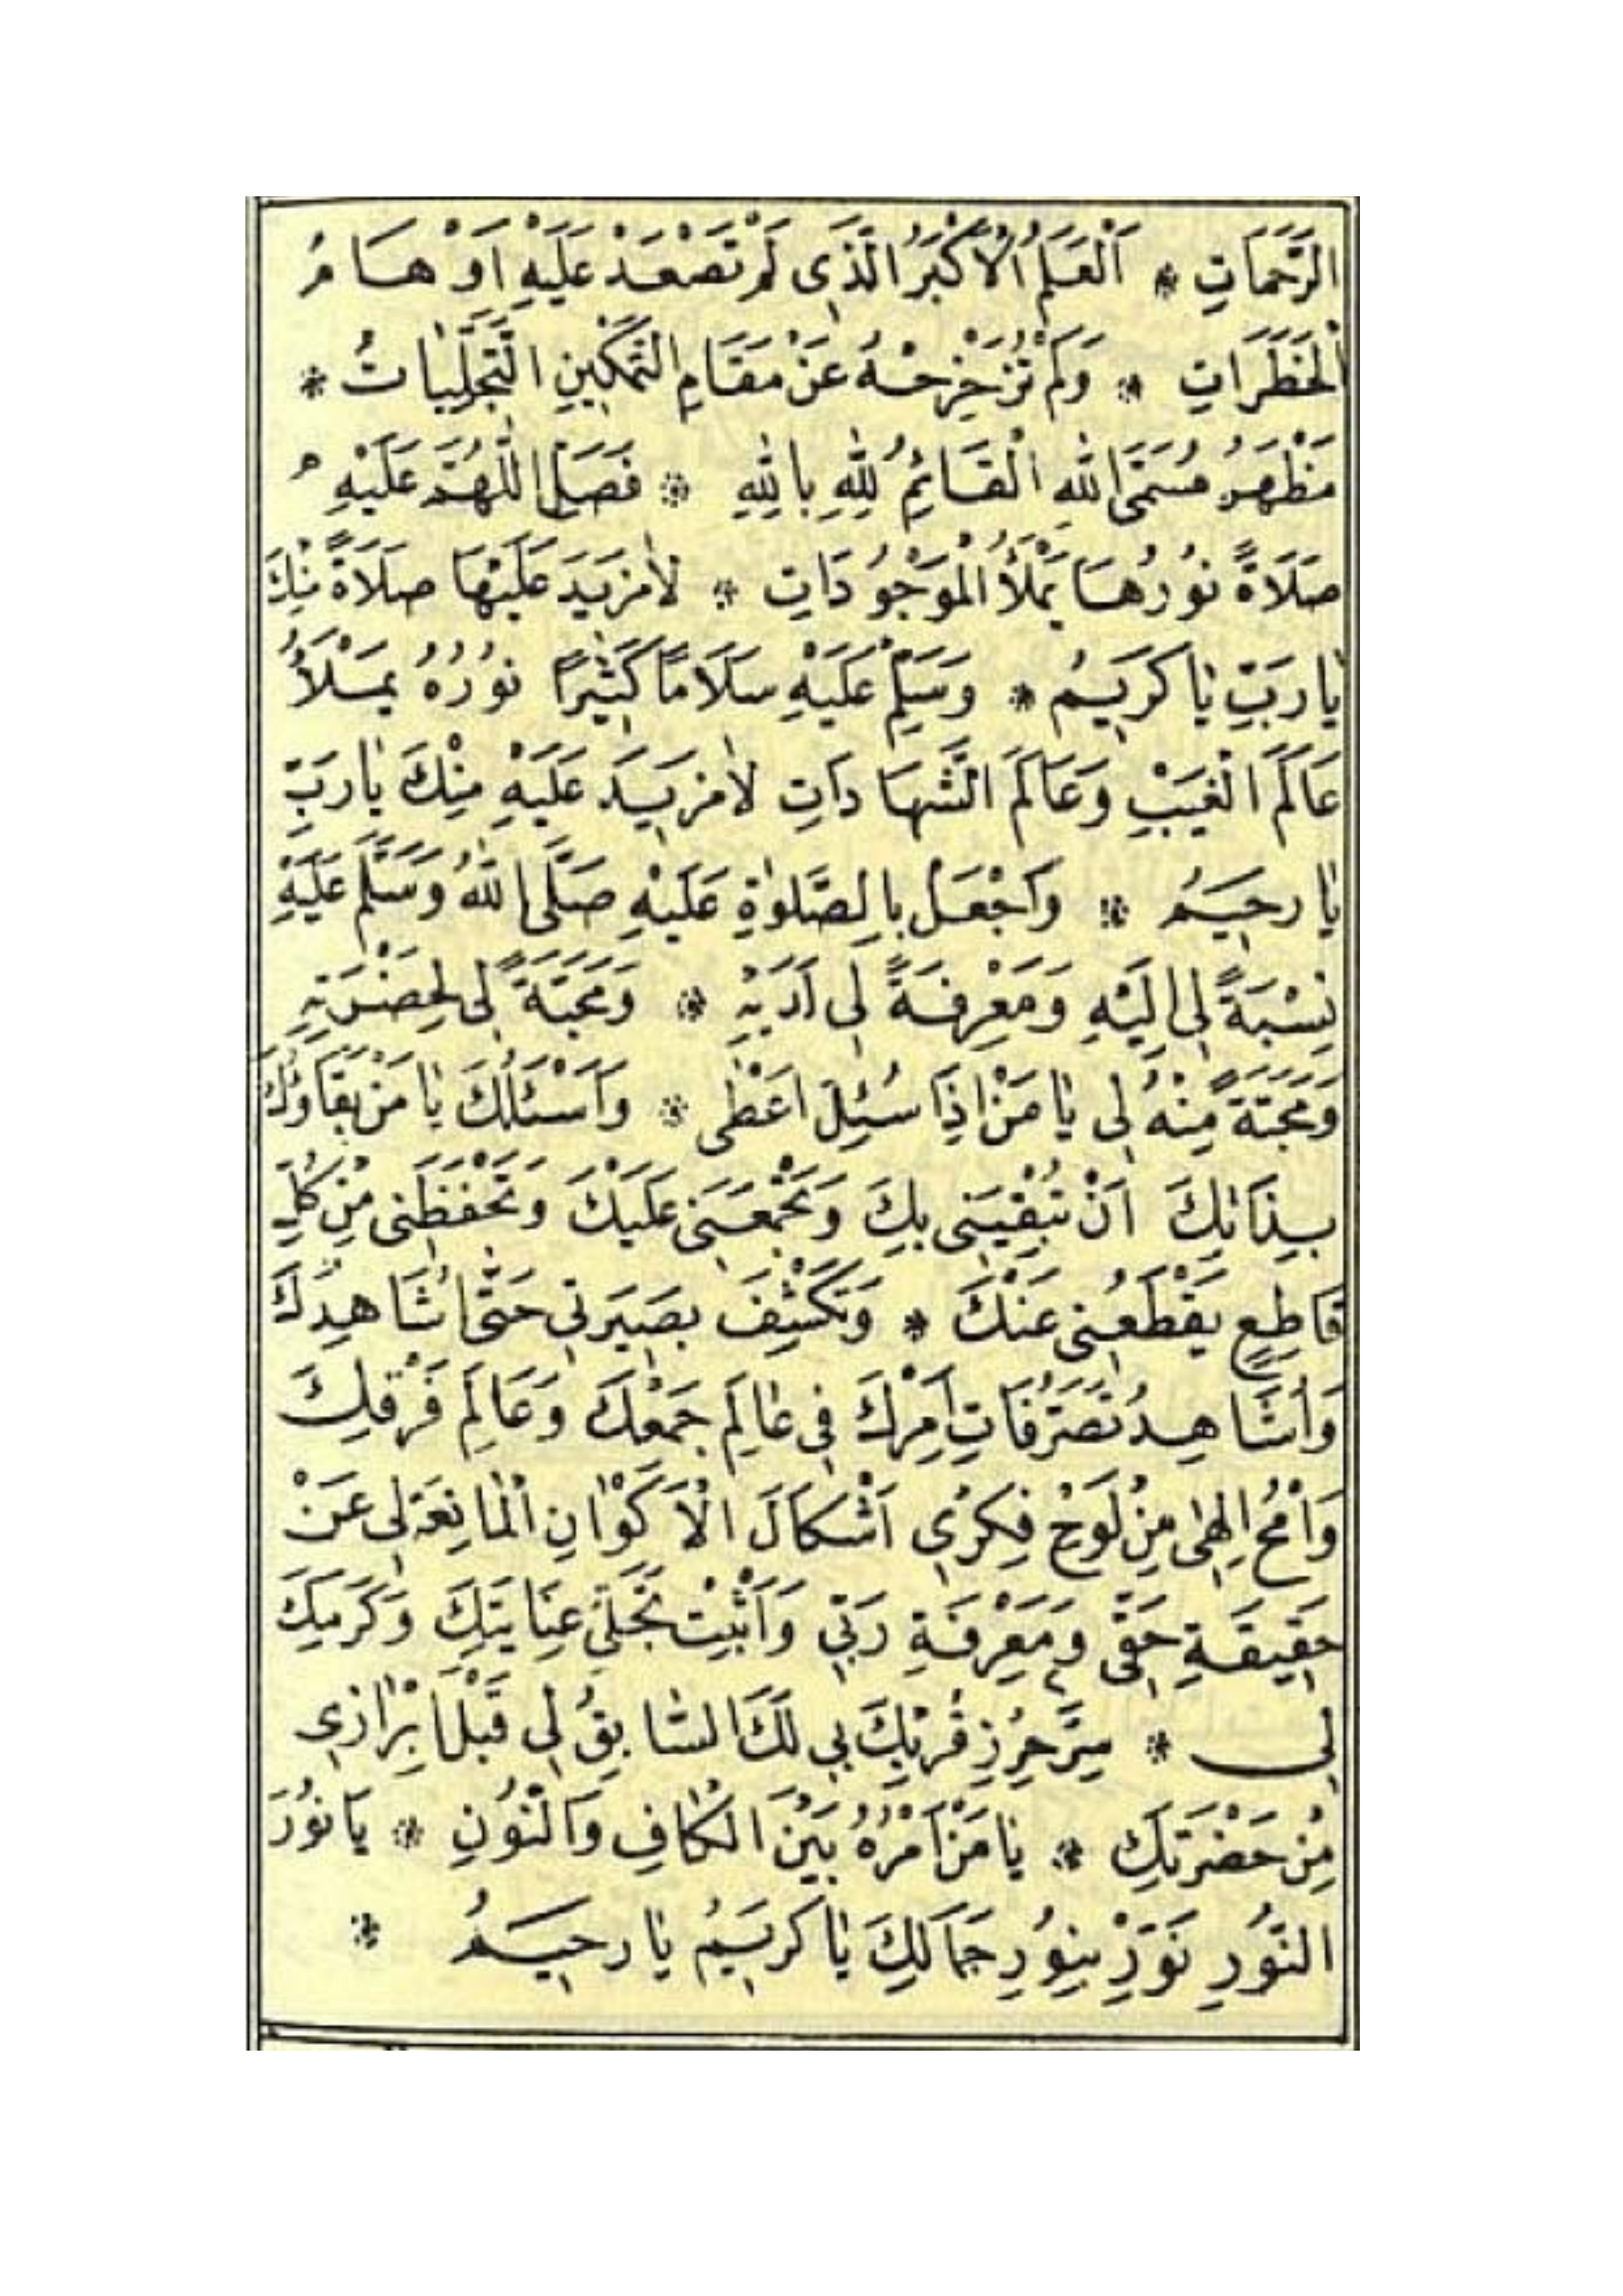 الرَّحَمَاتِ * اَلْعَلَمُ الْاَكْبَرُ الَّذِى لَمْ تَصْعَدْ عَلَيْهِ اَوْهَامُ
الْخَطَرَاتِ * وَلَمْ تُزَحْزِحْهُ عَنْ مَقَامِ التَّمْكِينِ التَّجَلِّيَاتُ *
مَظْهَرُ مُسَمَّى اللهِ الْقَائِمُ لِلهِ بِاللهِ * فَصَلِّ اللّٰهُمَّ عَلَيْهِ
صَلَاةً نُورُهَا يَمْلَأُ الْمَوْجُودَاتِ * لَامَزِيدَ عَلَيْهَا صَلَاةً مِنْكَ
يَارَبِّ يَاكَرِيمُ * وَسَلِّمْ عَلَيْهِ سَلَامًا كَثِيرًا نُورُهُ يَمْلَأُ
عَالَمَ الْغَيْبِ وَعَالَمَ الشَّهَادَاتِ لَامَزِيدَ عَلَيْهِ مِنْكَ يَارَبِّ
يَارَحِيمُ * وَاجْعَلْ بِالصَّلٰوةِ عَلَيْهِ صَلَّى اللهُ وَسَلَّمَ عَلَيْهِ
نِسْبَةً لِى اِلَيْهِ وَمَعْرِفَةً لِى اَدَبِهِ * وَمَحَبَّةً لِى لِحَضْرَتِهِ
وَمَحَبَّةً مِنْهُ لِى يَامَنْ اِذَا سُئِلَ اَعْطٰى * وَاَسْئَلُكَ يَامَنْ بَقَاؤُكَ
بِذَاتِكَ اَنْ تُبْقِيَنِى بِكَ وَتَجْمَعَنِى عَلَيْكَ وَتَحْفَظَنِى مِنْ كُلِّ
قَاطِعٍ يَقْطَعُنِى عَنْكَ * وَتَكْشِفَ بَصِيرَتِى حَتّٰى اُشَاهِدَكَ
وَاُشَاهِدُ تَصَرُّفَاتِ اَمْرِكَ فِى عَالَمِ جَمْعِكَ وَعَالَمِ فَرْقِكَ
وَامْحُ اِلٰهِى مِنْ لَوْحِ فِكْرِى اَشْكَالَ الْاَكْوَانِ الْمَانِعَةِ لِى عَنْ
حَقِيقَةِ حَقِّى وَمَعْرِفَةِ رَبِّى وَاَثْبِتْ تَجَلِّىَ عِنَايَتِكَ وَكَرَمِكَ
لِى * سِرَّ حِرْزِ قُرْبِكَ بِى لَكَ السَّابِقُ لِى قَبْلَ اِبْرَازِى
مِنْ حَضْرَتِكَ * يَامَنْ اَمْرُهُ بَيْنَ الْكَافِ وَالنُّونِ * يَانُورَ
النُّورِ نَوِّرْ بِنُورِ جَمَالِكَ يَاكَرِيمُ يَارَحِيمُ *